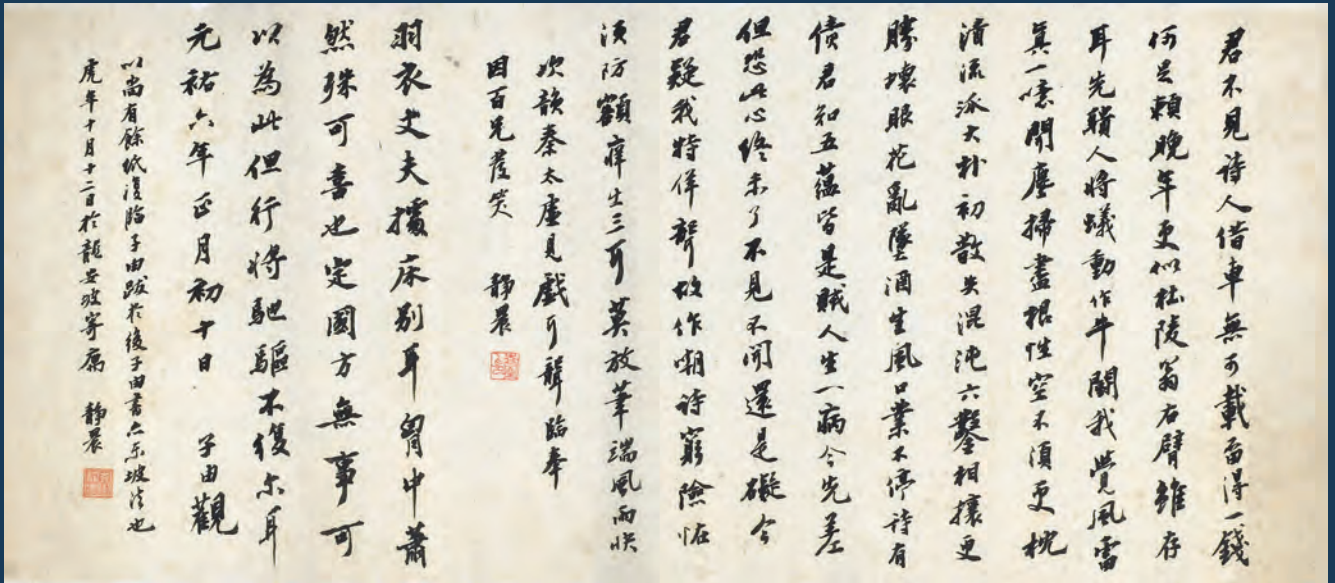 君不見詩人借車無可載留得一錢
何足賴晚年更似杜陵翁右臂雖存
耳先聵人將蟻動作牛鬭我覺風雷
真一噫聞塵掃盡根性空不須更枕
清流派大朴初散失混沌六鑿相攘更
勝壞眼花亂墜酒生風口業不停詩有
債君知五蘊皆是賊人生一病今先差
但恐此心終未了不見不聞還是礙今
君疑我特佯聾故作嘲詩窮險怪
須防額痒出三耳莫放筆端風雨快
次韻秦太虛見戲耳聾臨奉
因百兄發笑 靜農
羽衣丈夫據床別耳胷中蕭
然殊可喜也定國方無事可
以為此但行將馳驅不復尔耳
元祐六年正月初十日 子由觀
以尚有餘紙復臨子由跋於後子由書亦東坡法也
虎年十月十二日於龍安坡寄廬 靜農